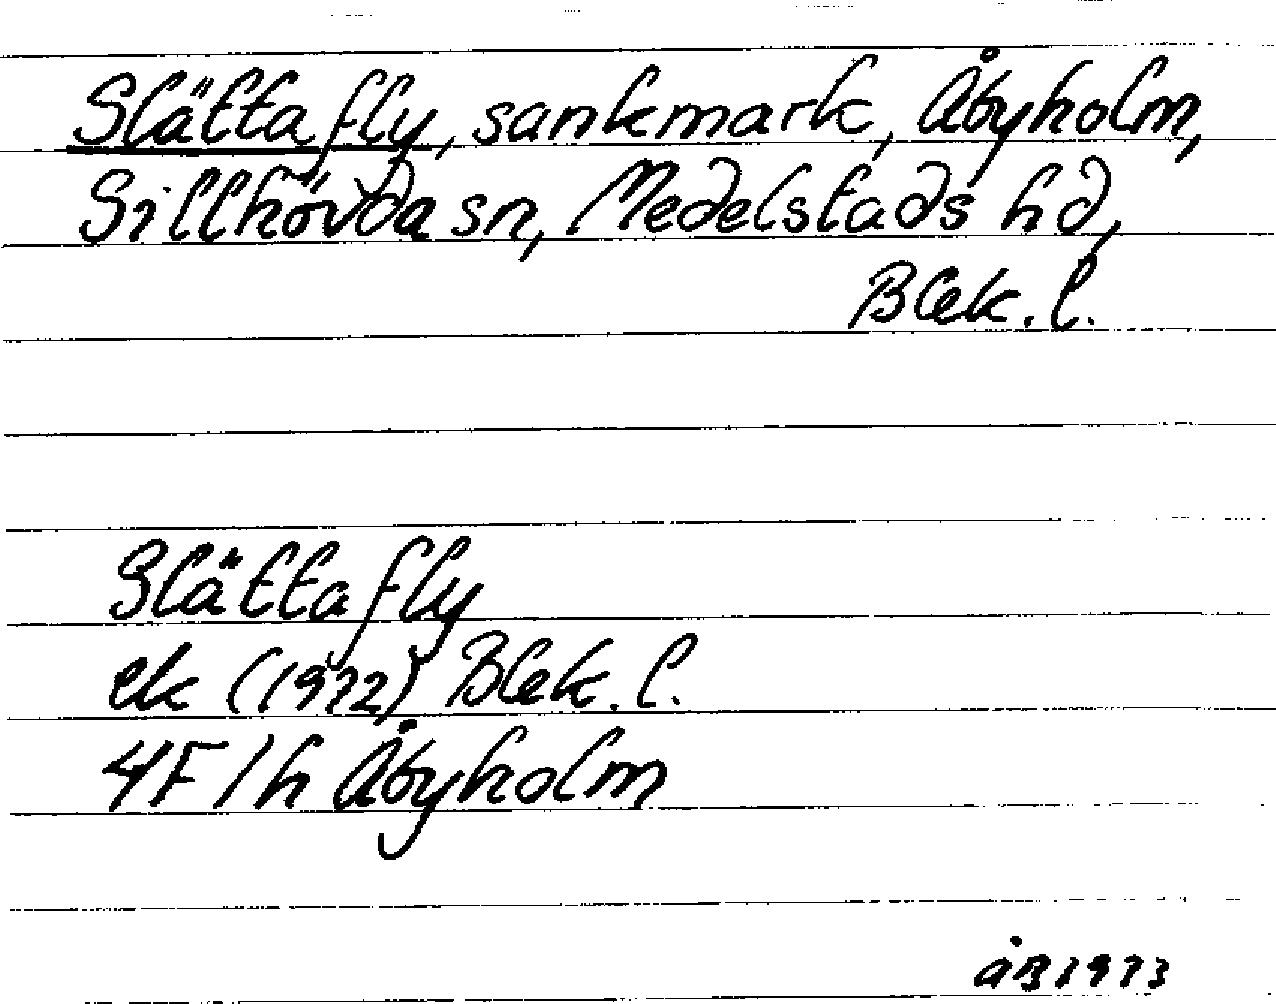 Slättafly, sankmark, Åbyholm,
Sillhövda sn, Medelstads hd,
Blek. l.
Slättafly
ek (1972) Blek. l.
4F 1h Åbyholm
ÅB 1973